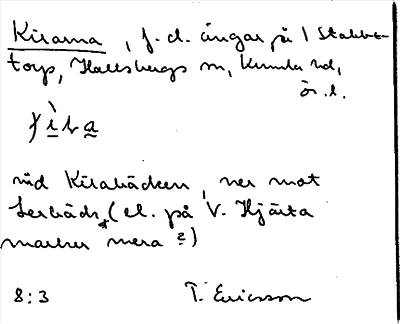 Kilarna, f. d. ängar på 1 Stabbe-
torp, Hallsbergs sn, Kumla hd,
ör. l.
vid Kilabäcken, ner mot
(el. på V. Hjärta
marker mera ?)
8:3 T. Ericsson